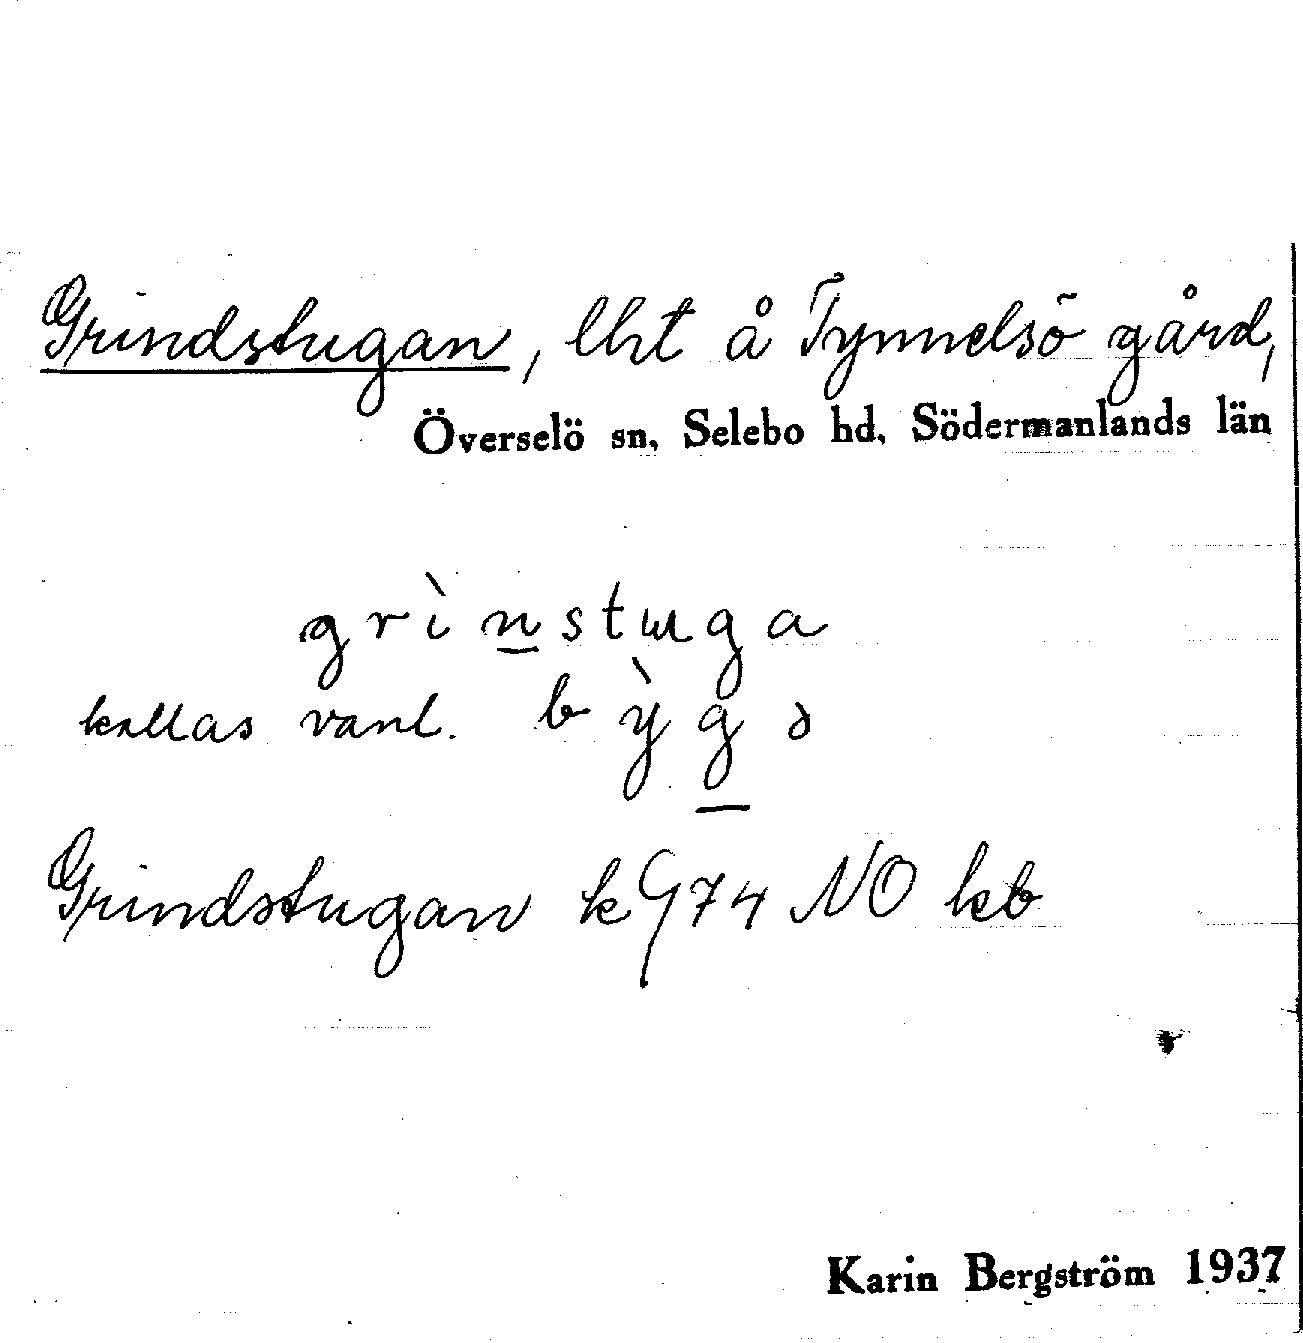 Grindstugan, lht å Tynnelsö gård,
Överselö sn, Selebo hd, Södermanlands län
grìn̲stuga
kallas vanl. bỳg̲ə
Grindstugan k G 74 NO kb
Karin Bergström 1937